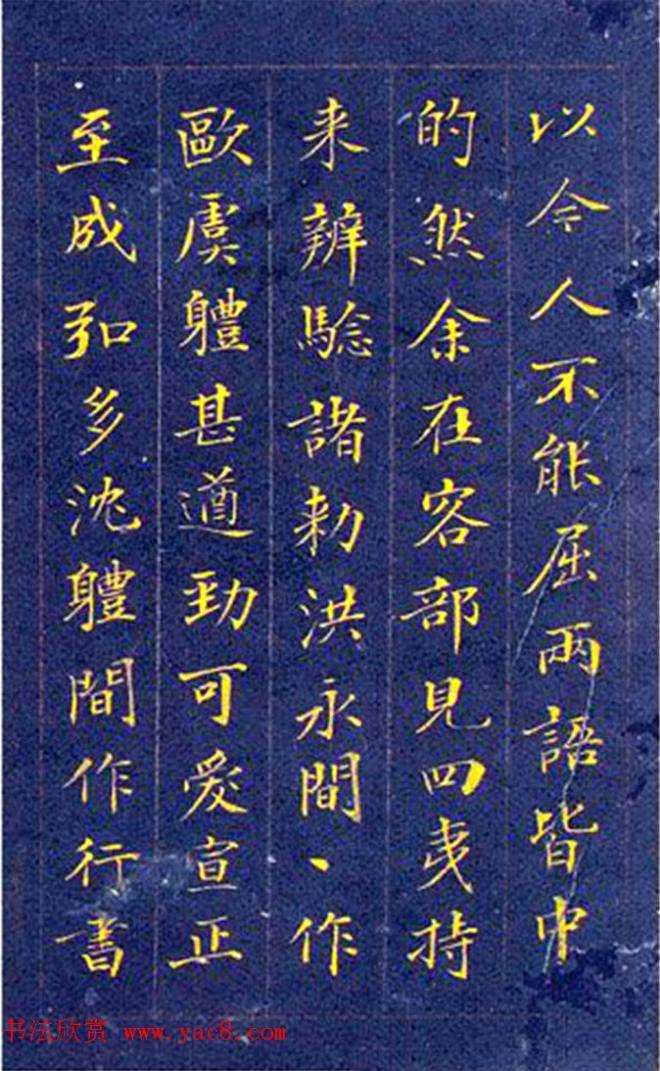 以今人不能屈兩語皆中
的然余在容部見四夷持
来辨驗諸勅洪永間丶作
歐虞軆甚遒勁可爱宣正
至成弘多沈軆間作行書
书法欣赏 www.yac8.com